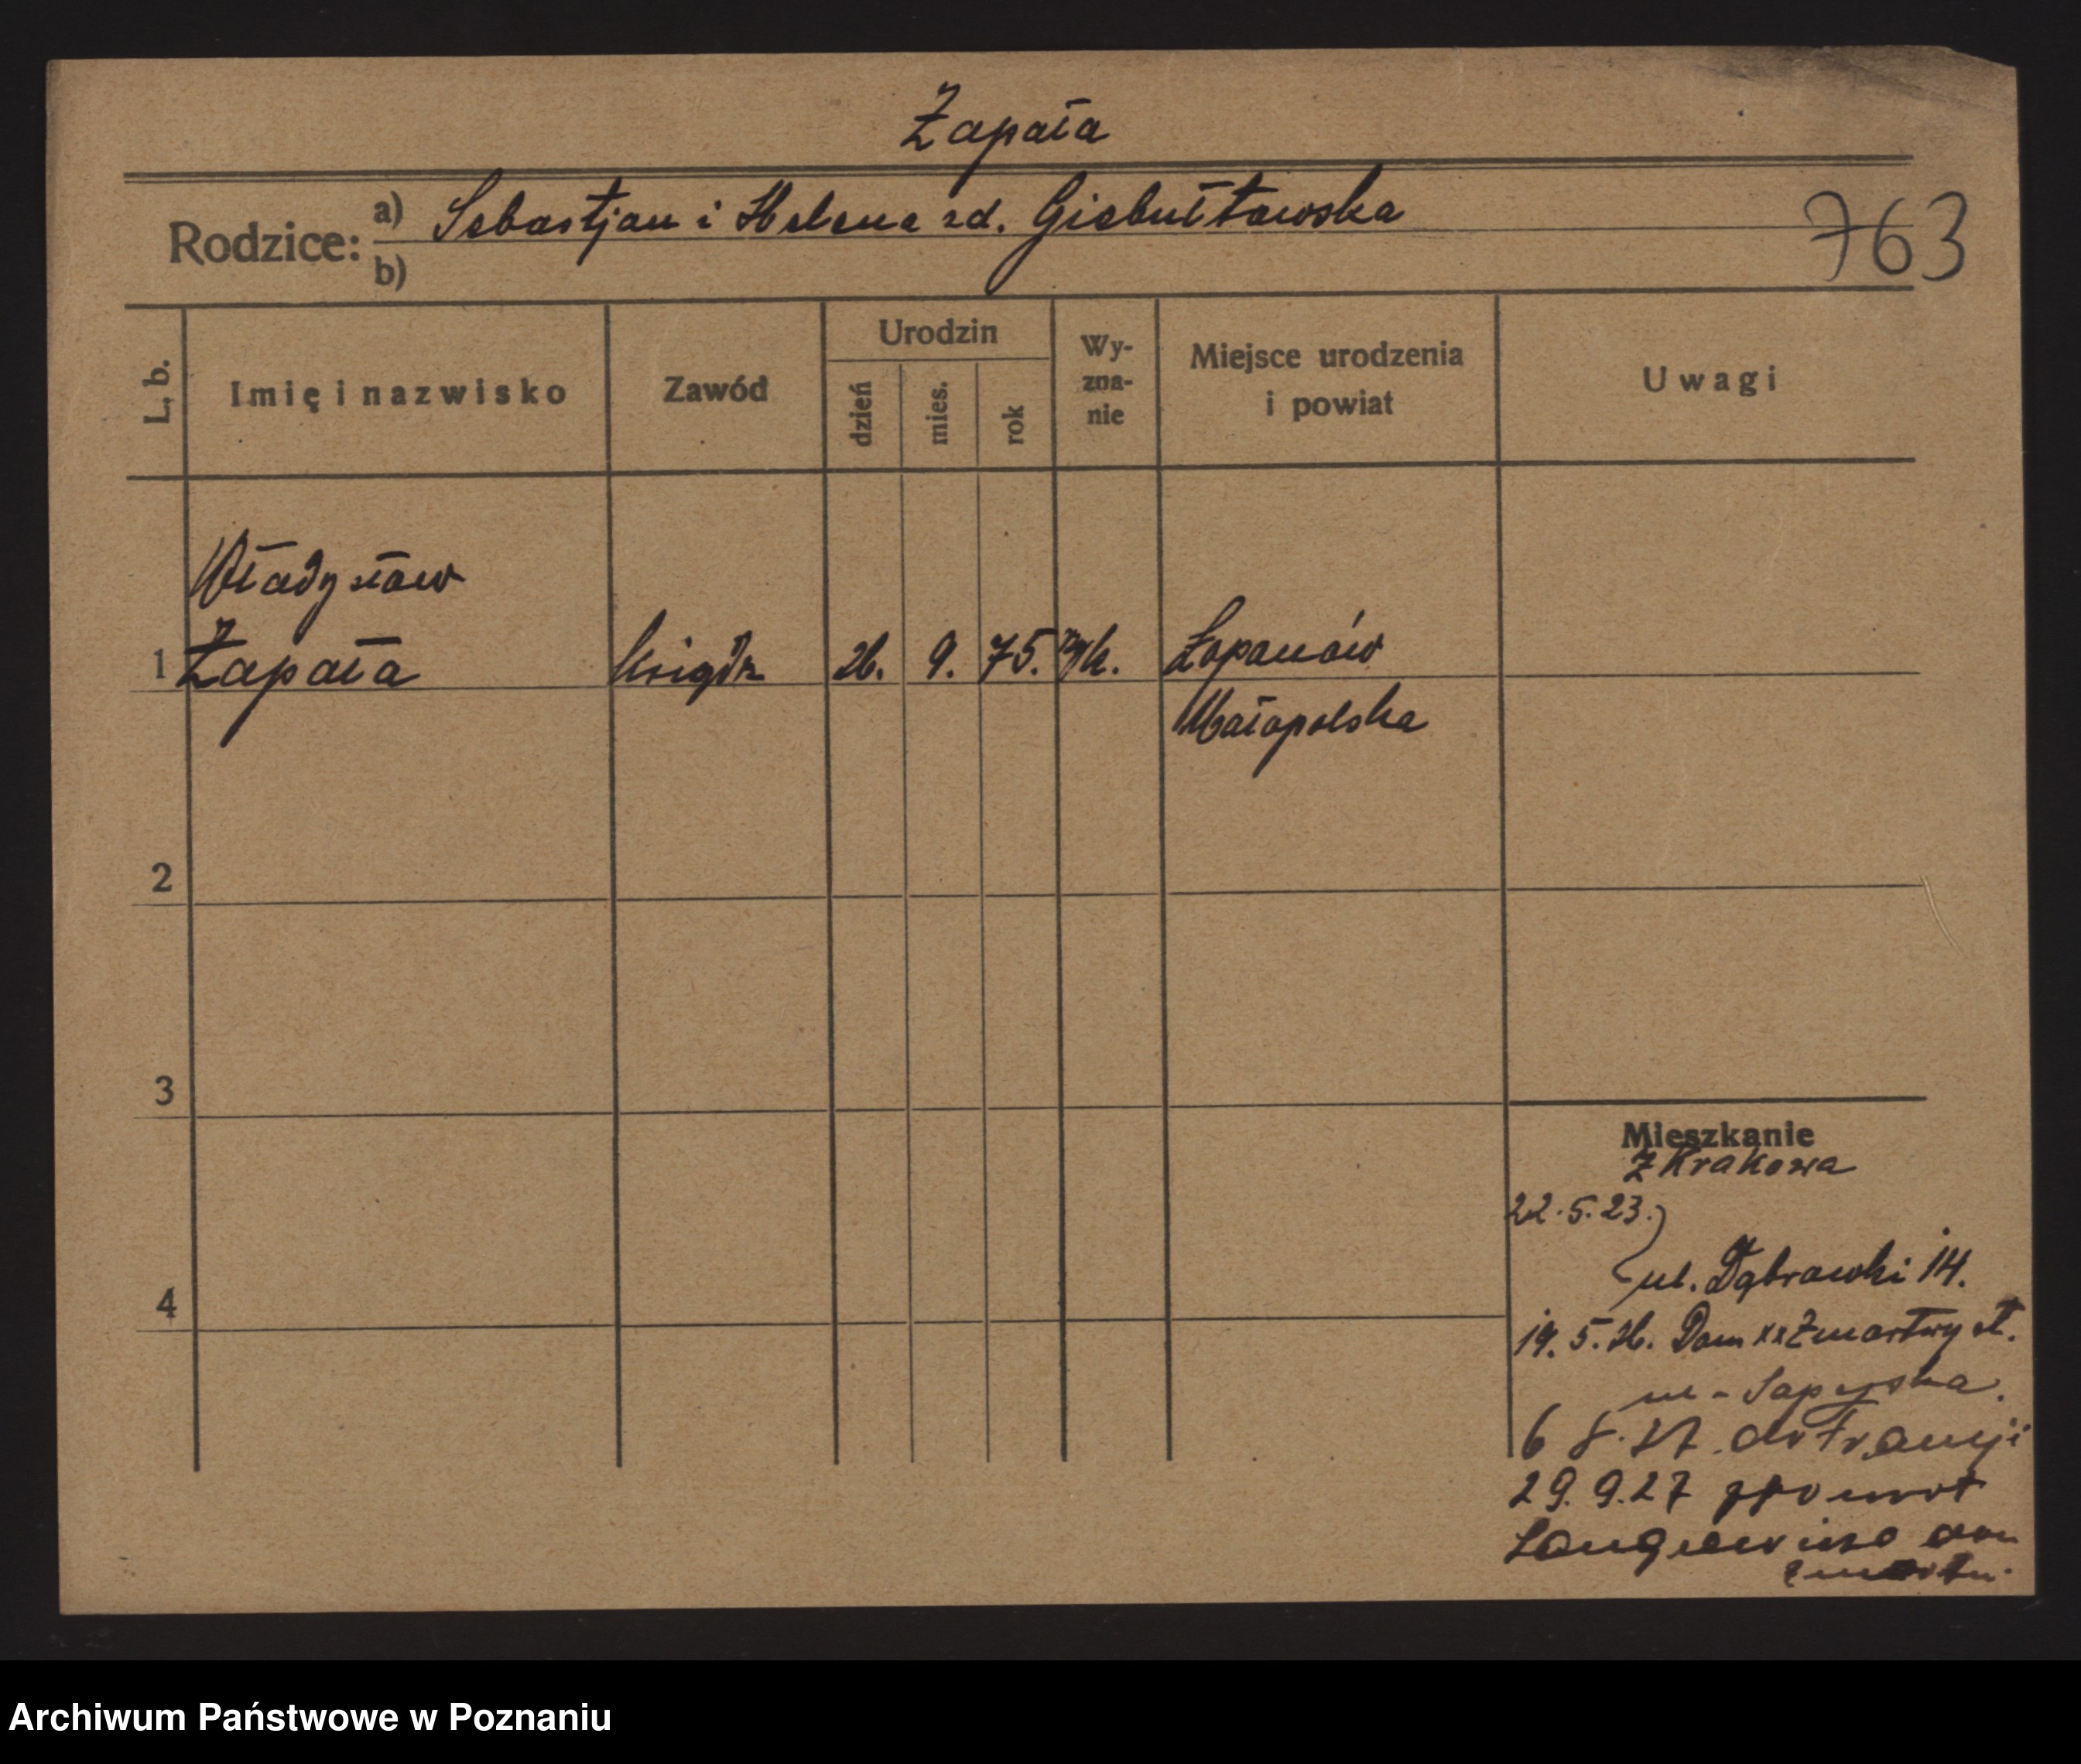 Zapała
Rodzice: a) Sebastjan i Helena zd. Giebułtowska
b)
763
L. b.
Imię i nazwisko
Zawód
Urodzin
dzień
mies.
rok
Wy-
zna-
nie
Miejsce urodzenia
i powiat
Uwagi
Władysław
1 Zapała Ksiądz 26. 9. 75. rz/k. Łapanów
Małopolska
2
3
4
Mieszkanie
Z Krakowa
22.5.23.
ul. Dąbrowski 14.
19.5.26. Dom xx Zmartwychst.
ul - 
6 8.27. do Francji
29.9.27 zpowrot
dom
Zmartw.
Archiwum Państwowe w Poznaniu